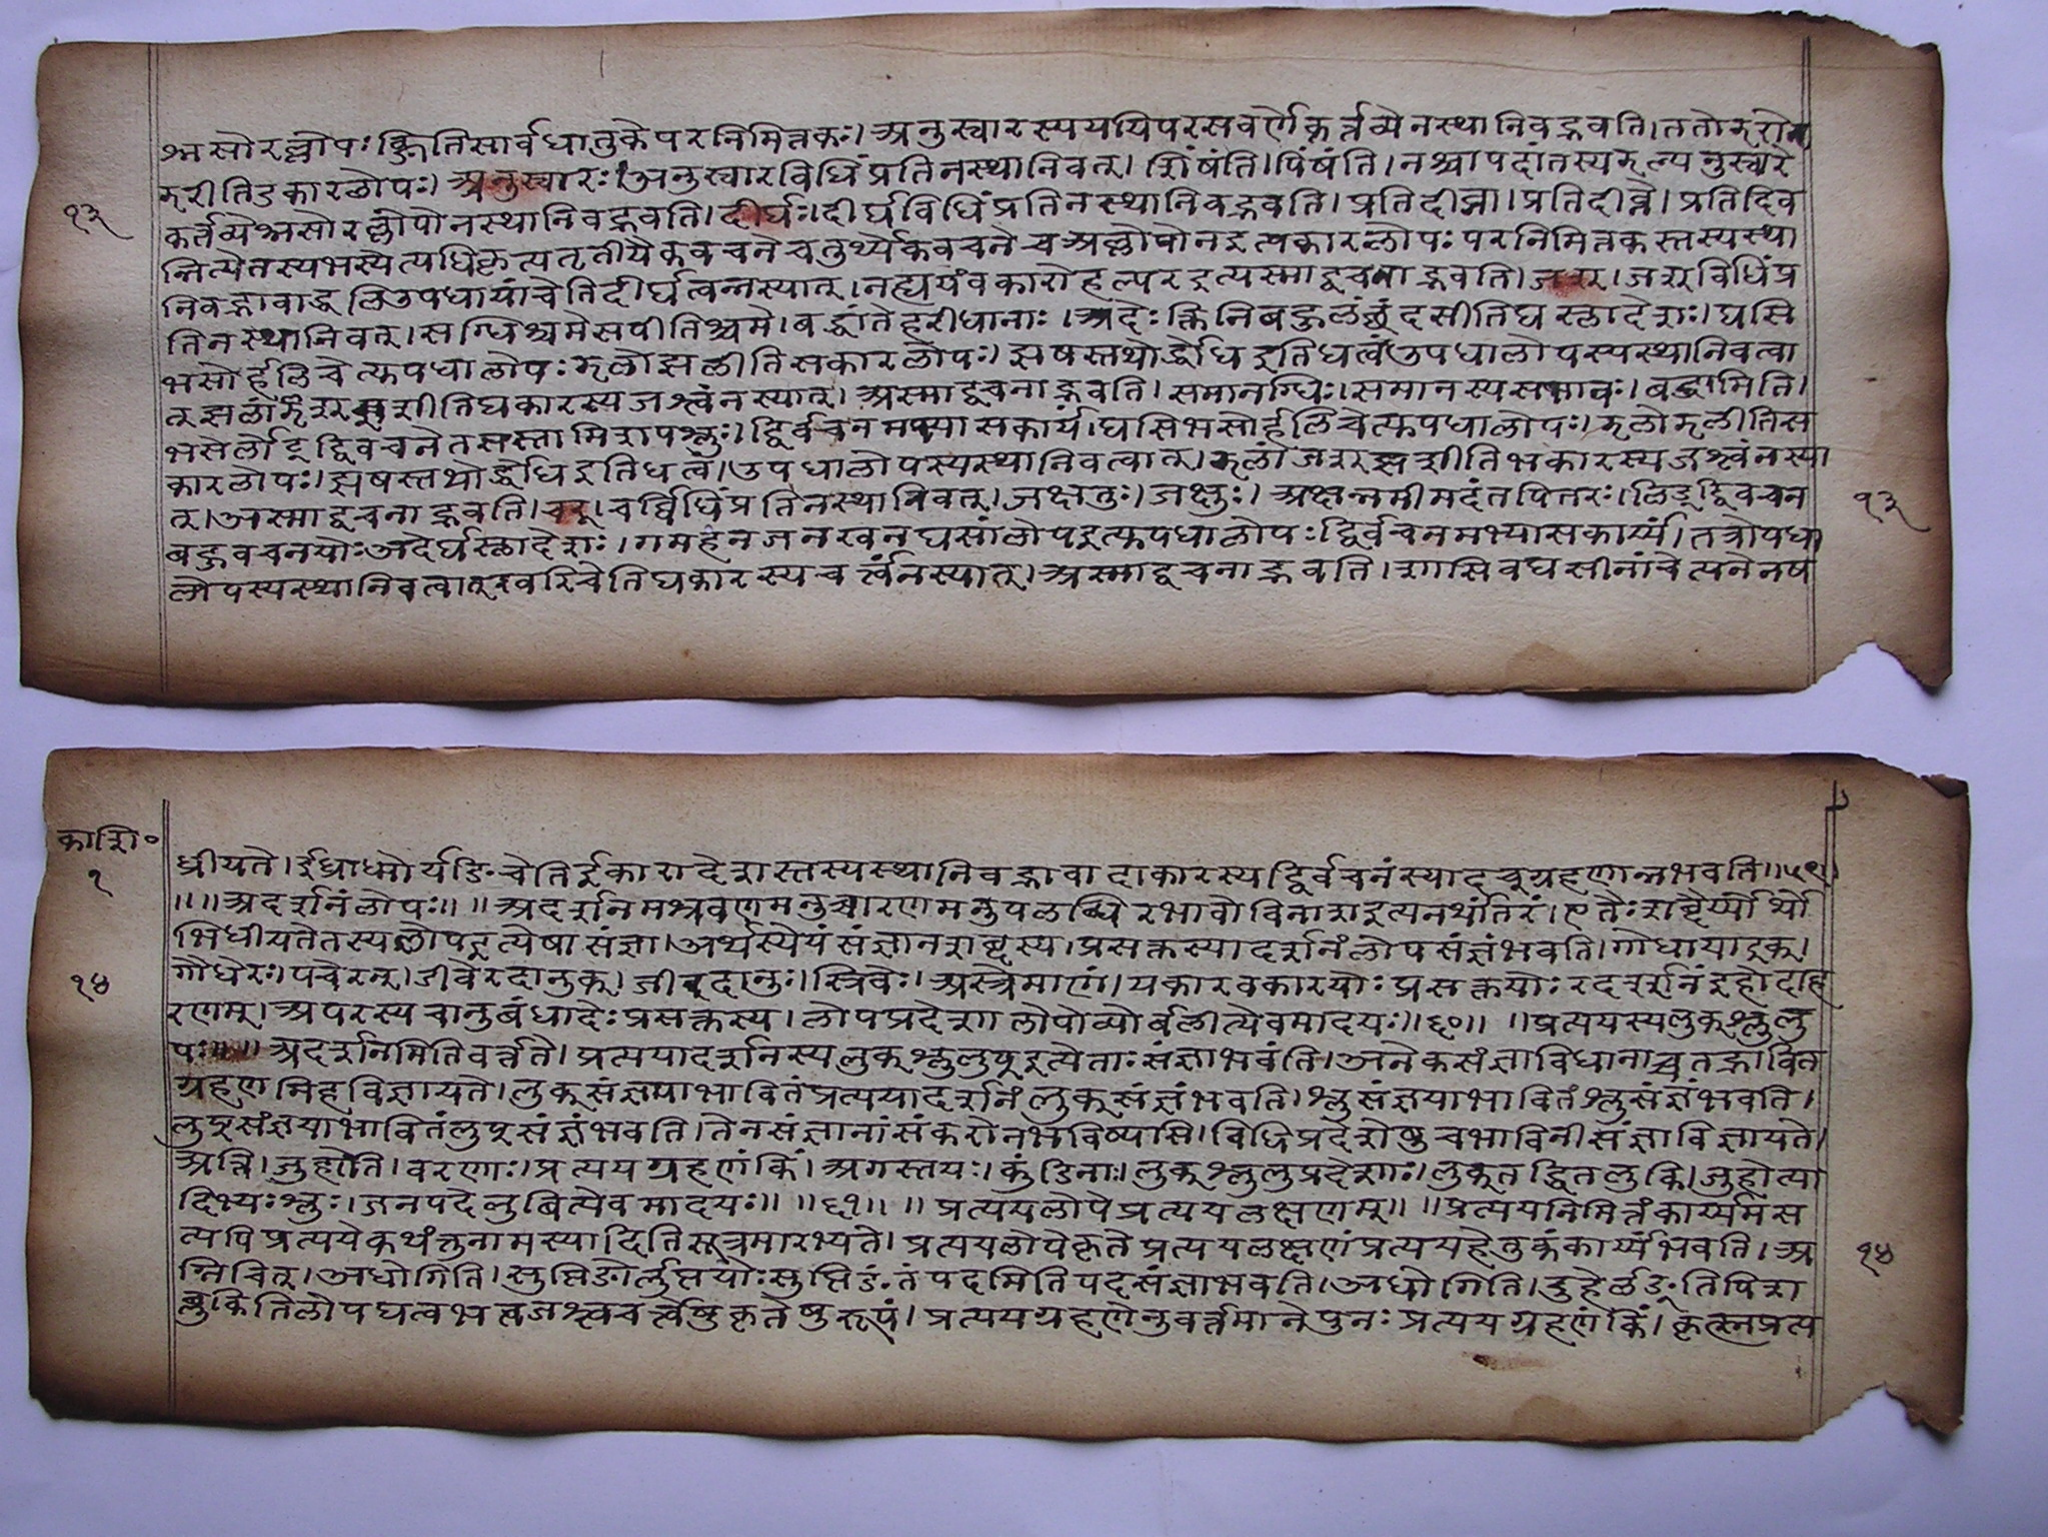 श्नसोरल्लोपः क्ङितिसार्वधातुकेपरनिमित्तकः। अनुस्वारस्यययिपरसवर्णेकर्त्तव्येनस्थानिवद्भवति। ततोझरोझ
झरीतिडकारलोपः। अनुस्वारः। अनुस्वारविधिंप्रतिनस्थानिवत्। शिंषंति। पिंषंति। नश्चापदांतस्यझल्यनुस्वारे
१३
कर्तव्येश्नसोरल्लोपोनस्थानिवद्भवति। दीर्घः। दीर्घविधिंप्रतिनस्थानिवद्भवति। प्रतिदीव्ना। प्रतिदीव्ने। प्रतिदिव
न्नित्येतस्यभस्येत्यधिकृत्यतृतीयैकवचनेचतुर्थ्येकवचनेचअल्लोपोनइत्यकारलोपः परनिमित्तकस्तस्यस्था
निवद्भावाद्धलिउपधायांचेतिदीर्घत्वन्नस्यात्। नह्ययंवकारोहल्परइत्यस्माद्वचनाद्भवति। जश्। जश्विधिंप्र
तिनस्थानिवत्। सग्धिश्चमेसपीतिश्चमे। बब्धांतेहरीधानाः। अदेः क्तिनिबहुलंछंदसीतिघस्लादेशः। घसि
भसोर्हलिचेत्युपधालोपः झलोझलीतिसकारलोपः। झषस्तथोर्द्धोधइतिधत्वंउपधालोपस्यस्थानिवत्वा
त्झलांजश्झशीतिघकारस्यजश्त्वंनस्यात्। अस्माद्वचनाद्भवति। समानग्धिः। समानस्यसभावः। बब्धामिति।
भसेर्लोड्द्विवचनेतसस्तामिशपश्लुः। द्विर्वचनमभ्यासकार्यं। घसिभसोर्हलिचेत्युपधालोपः। झलोझलीतिस
कारलोपः। झषस्तथोर्द्धोधइतिधत्वं। उपधालोपस्यस्थानिवत्वात्। झलांजश्झशीतिभकारस्यजश्त्वंनस्या
त्। अस्माद्वचनाद्भवति। चर्। चर्विधिंप्रतिनस्थानिवत्। जक्षतुः। जक्षुः। अक्षन्नमीमदंतपितरः। लिड्द्विवचन
१३
बहुवचनयोः अदेर्घस्लादेशः। गमहनजनखनघसांलोपइत्युपधालोपः द्विर्वचनमभ्यासकार्य्यं। तत्रोपधा
लोपस्यस्थानिवत्वात्खरिचेतिघकारस्यचर्त्वंनस्यात्। अस्माद्वचनाद्भवति। शासिवघसीनांचेत्यनेनष
काशि०
१
ध्रीयते। ईघ्राध्मोर्यङिचेतिईकारादेशस्तस्यस्थानिवद्भावादाकारस्यद्विर्वचनंस्यादच्ग्रहणान्नभवति॥५९॥
॥॥अदर्शनंलोपः॥ ॥अदर्शनमश्रवणमनुच्चारणमनुपलब्धिरभावोविनाशइत्यनर्थांतरं। एतैः शब्दैर्य्योर्थो
भिधीयतेतस्यलोपइत्येषासंज्ञा। अर्थस्येयंसंज्ञानशब्दस्य। प्रसक्तस्यादर्शनंलोपसंज्ञंभवति। गोधायाढ्रक्।
१४
गौधेरः। पचेरन्। जीवेरदानुक्। जीरदानुः। स्त्रिवेः। अस्त्रेमाणं। यकारवकारयोः प्रसक्तयोः रदर्शनंइहोदाह
रणम्। अपरस्यचानुबंधादेः प्रसक्तस्य। लोपप्रदेशा लोपोव्योर्वलीत्येवमादयः॥६०॥ ॥प्रत्ययस्यलुक्श्लुलु
पः॥ ॥अदर्शनमितिवर्त्तते। प्रत्ययादर्शनस्यलुक्श्लुलुप्इत्येताः संज्ञाभवंति। अनेकसंज्ञाविधानाच्चतद्भावित
ग्रहणमिहविज्ञायते। लुक्संज्ञयाभावितंप्रत्ययादर्शनंलुक्संज्ञंभवति। श्लुसंज्ञयाभावितंश्लुसंज्ञंभवति।
लुप्संज्ञयाभावितंलुप्संज्ञंभवति। तेनसंज्ञानांसंकरोनभविष्यसि। विधिप्रदेशेषुचभाविनीसंज्ञाविज्ञायते।
अत्ति। जुहोति। वरणाः। प्रत्ययग्रहणंकिं। अगस्तयः। कुंडिनाः। लुक्श्लुलुप्रदेशाः। लुक्तद्धितलुकि। जुहोत्या
दिभ्यः श्लुः। जनपदेलुबित्येवमादयः॥ ॥६१॥ ॥ प्रत्ययलोपेप्रत्ययलक्षणम्॥ ॥प्रत्ययनिमित्तंकार्य्यमस
त्यपिप्रत्ययेकथंनुनामस्यादितिसूत्रमारभ्यते। प्रत्ययलोपेकृतेप्रत्ययलक्षणंप्रत्ययहेतुकंकार्य्यंभवति। अ
१४
ग्निचित्। अधोगिति। सुप्तिङोर्लुप्तयोः सुप्तिङंतंपदमितिपदसंज्ञाभवति। अधोगिति। दुहेर्लङ्तिपिश
ब्लुकितिलोपघत्वभत्वजश्त्वचर्त्वेषुकृतेषुरूपं। प्रत्ययग्रहणेनुवर्त्तमानेपुनः प्रत्ययग्रहणंकिं। कृत्स्नप्रत्य